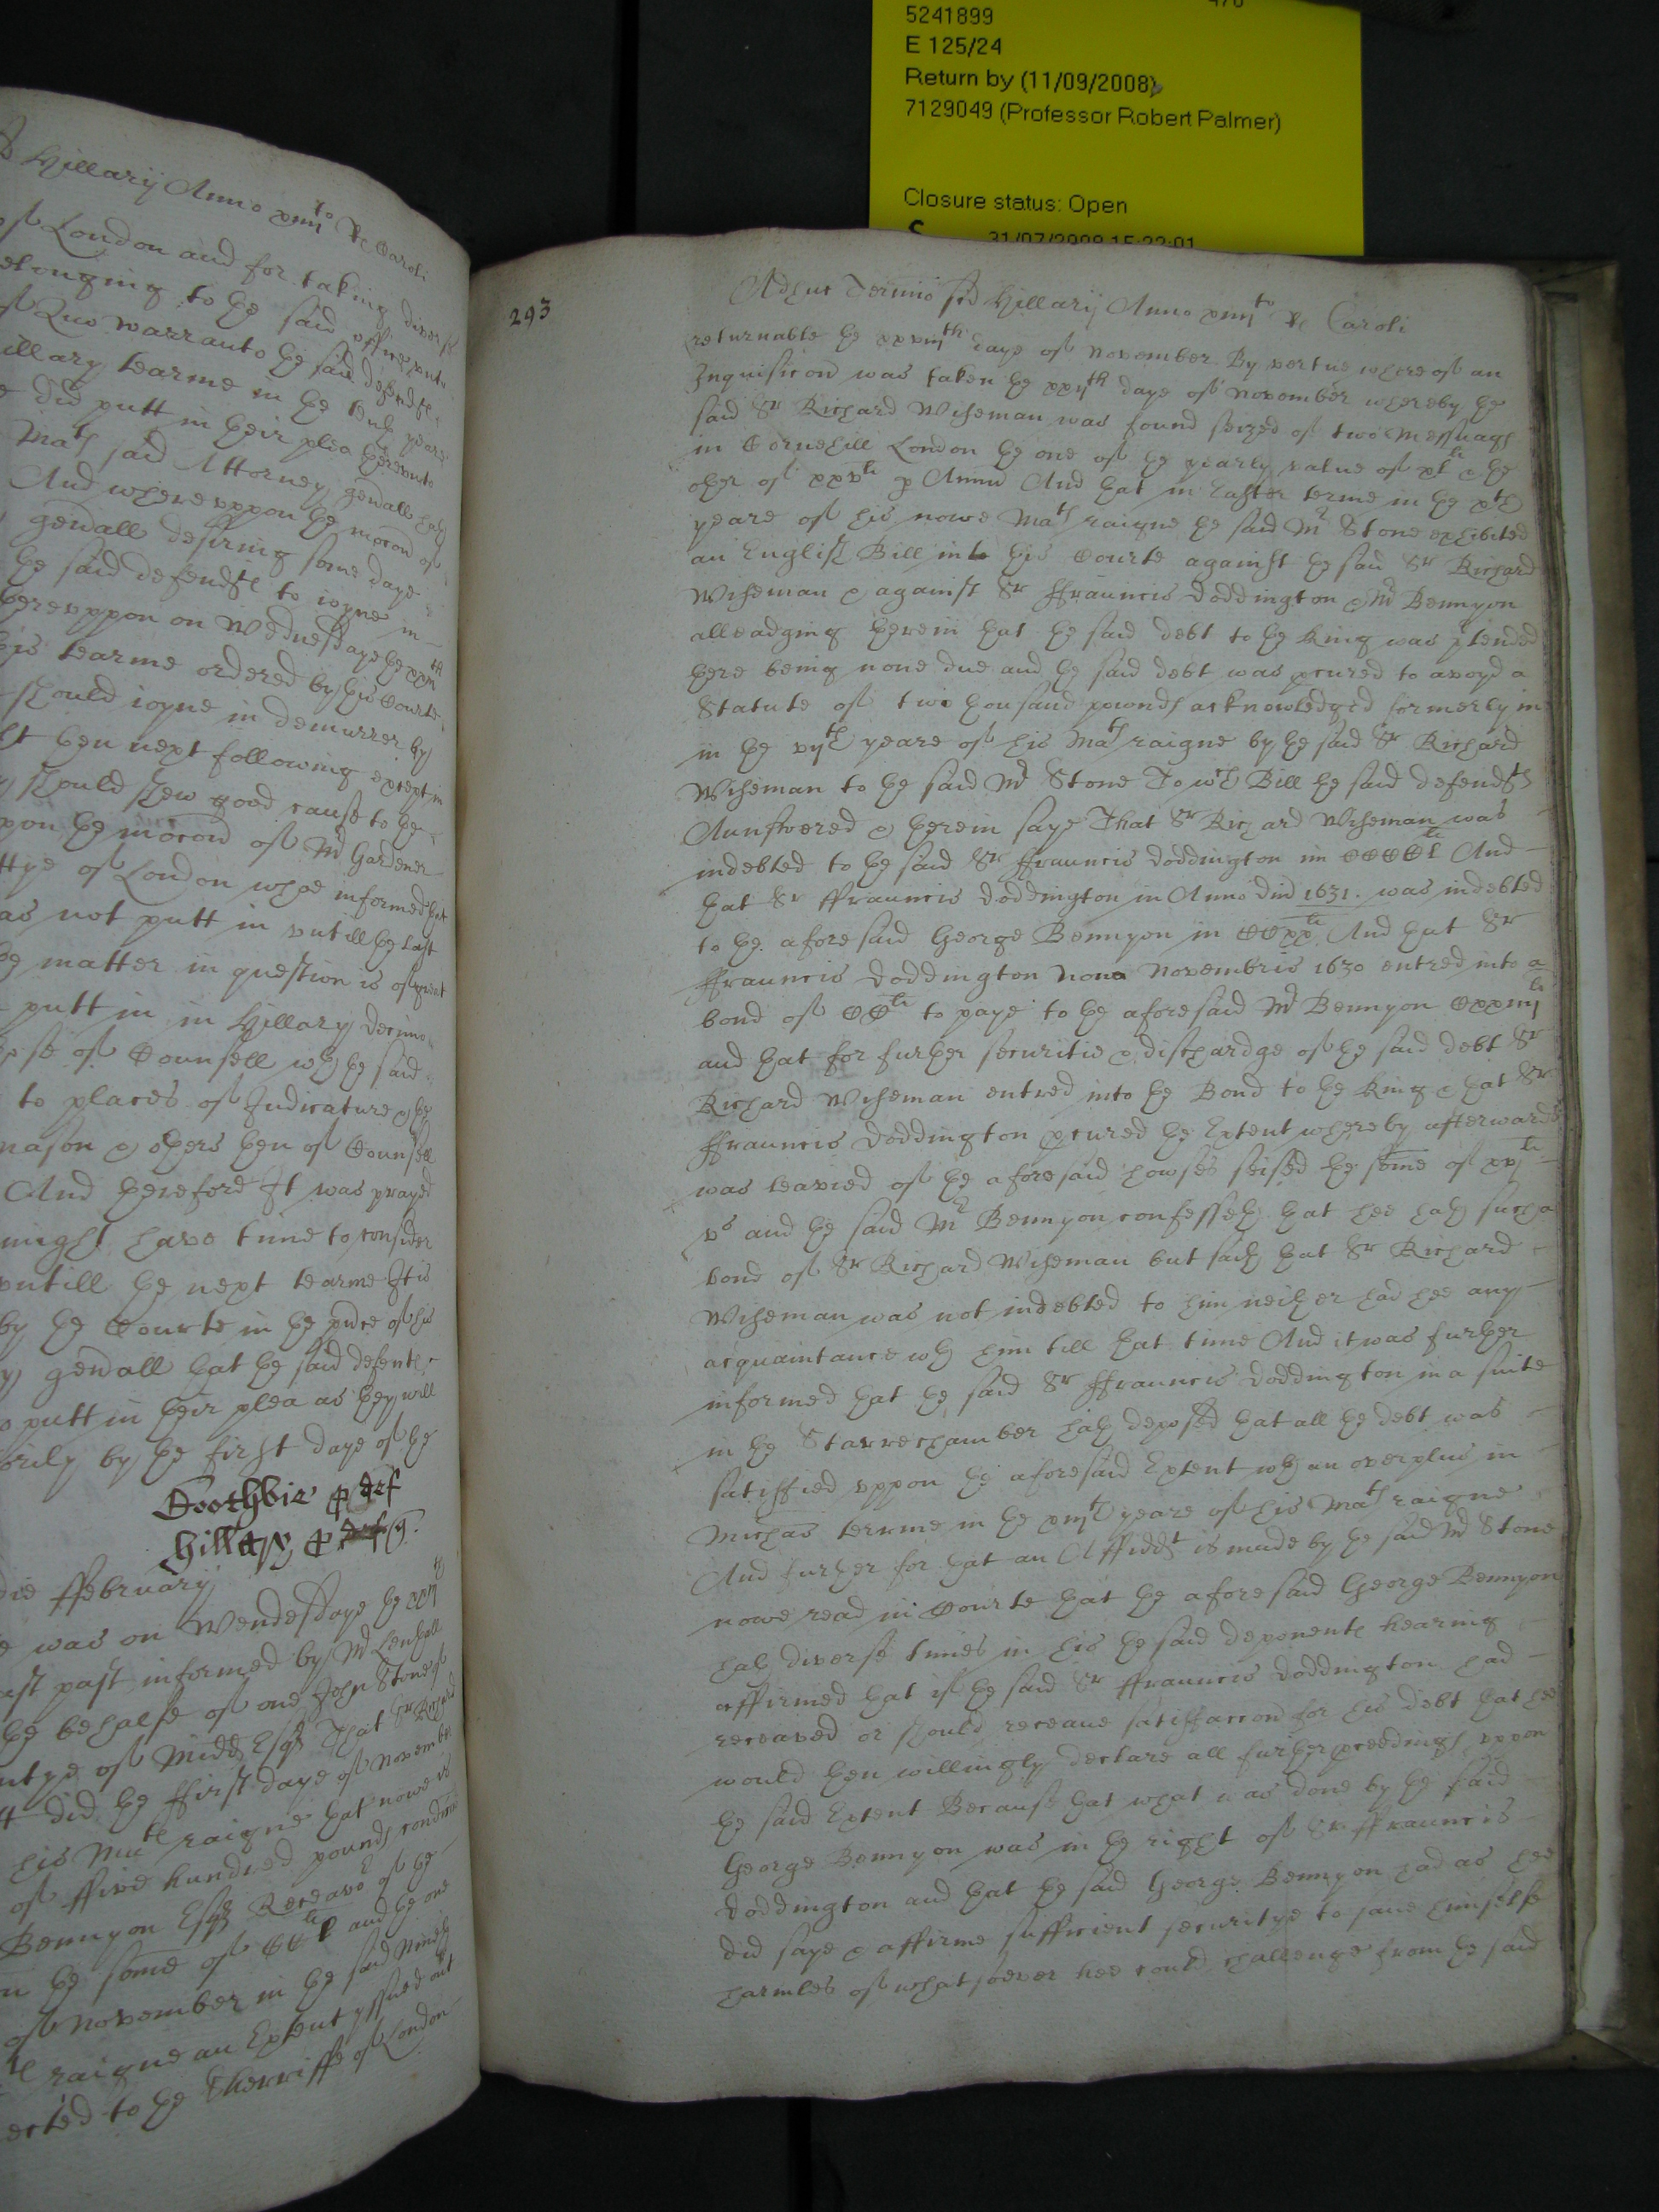 5241899
E 125/24
Return by (11/09/2008)
7129049 (Professor Robert Palmer)
Closure status: Open
31/07/2008 15:22:01
Hillarij Anno xiiijto Rs Caroli
of London and for taking diverse
belonging to the said offices unto
of Quo warranto the said defendtes
Hillary tearme in the tenth yeare
did putt in their plea thereunto
Mats said Attorney generall hath
And whereuppon the mocon of
generall desiring some daye
the said defendtes to ioyne in
thereuppon on Wednesdaye the
this tearme ordered by this Courte
should ioyne in demurrer by
then next following except in
should shew good cause to the
uppon the mocon of Mr Gardener
Cittye of London whoe informed that
was not putt in untill the last
the matter in question is of great
putt in in Hillary Termino
of Counsell wth the said
to places of Judicature & the
Mason & others then of Counsell
And therefore It was prayed
might have time to consider
untill the next tearme It is
by the Courte in the pnce of his
generall that the said defentes
putt in their plea as they will
by the first daye of the
Boothbie p def
Hillary p
die ffebruarij
was on Wendesdaye the
last past informed by Mr Lenthall
the behalfe of one John Stone of
Countye of Midd Esqr That Sr Richard
did the ffirst daye of November
his Mats raigne that nowe is
of ffive hundred pounds condicon
Bennyon Esqr Receavor of the
the some of CCl li and the one
of November in the said Nineth
raigne an Extent yssued out
directed to the Sherriffe of London
293
Adhuc Termino sci Hillarij Anno xiiijto Rs Caroli
returnable the xxviijth daye of November By vertue whereof an
Inquisicon was taken the xxijth daye of November whereby the
said Sr Richard Wiseman was found seized of two Messuags
in Cornehill London the one of the yearly value of xl li & the
other of xxv li p Annu And that in Easter terme in the xth
yeare of his nowe Mats raigne the said Mr Stone exhibited
an English Bill into this Courte against the said Sr Richard
Wiseman & against Sr ffrauncis Doddington & Mr Bennyon
alleadging therein that the said debt to the King was ptended
there being none due and the said debt was pcured to avoyd a
Statute of two thousand pownds acknowledged formerly in
in the vijth yeare of his Mats raigne by the said Sr Richard
Wiseman to the said Mr Stone To wch Bill the said defendts
Aunswered & therein saye That Sr Richard Wiseman was
indebted to the said Sr ffrauncis Doddington in CCCCl li And
that Sr ffrauncis Doddington in Anno Dni 1631. was indebted
to the aforesaid George Bennyon in CCxx li And that Sr
ffrauncis Doddington nono Novembris 1630 entred into a
bond of CC li to paye to the aforesaid Mr Bennyon Cxxiiij li
and that for further securitie & dischardge of the said debt Sr
Richard Wiseman entred into the Bond to the King & that Sr
ffrauncis Doddington pcured the Extent whereby afterwards
was leavied of the aforesaid howses seised the some of xvj li
vs and the said Mr Bennyon confesseth that hee hath such a
bond of Sr Richard Wiseman but saith that Sr Richard
Wiseman was not indebted to him neither had hee any
acquaintance wth him till that time And it was further
informed that the said Sr ffrauncis Doddington in a suite
in the Starrechamber hath deposed that all the debt was
satisfied uppon the aforesaid Extent wth an overplus in
Michas terme in the xiijth yeare of his Mats raigne
And further for that an Affiddt is made by the said Mr Stone
nowe read in Courte that the aforesaid George Bennyon
hath diverse times in his the said deponents hearing
affirmed that if the said Sr ffrauncis Doddington had
receaved or should receave satisfaccon for his debt that hee
would then willingly declare all further pceedings uppon
the said Extent Because that what was done by the said
George Bennyon was in the right of Sr ffrauncis
Doddington and that the said George Bennyon had as hee
did saye & affirme sufficient securitye to save himselfe
harmles of whatsoever hee could challenge from the said